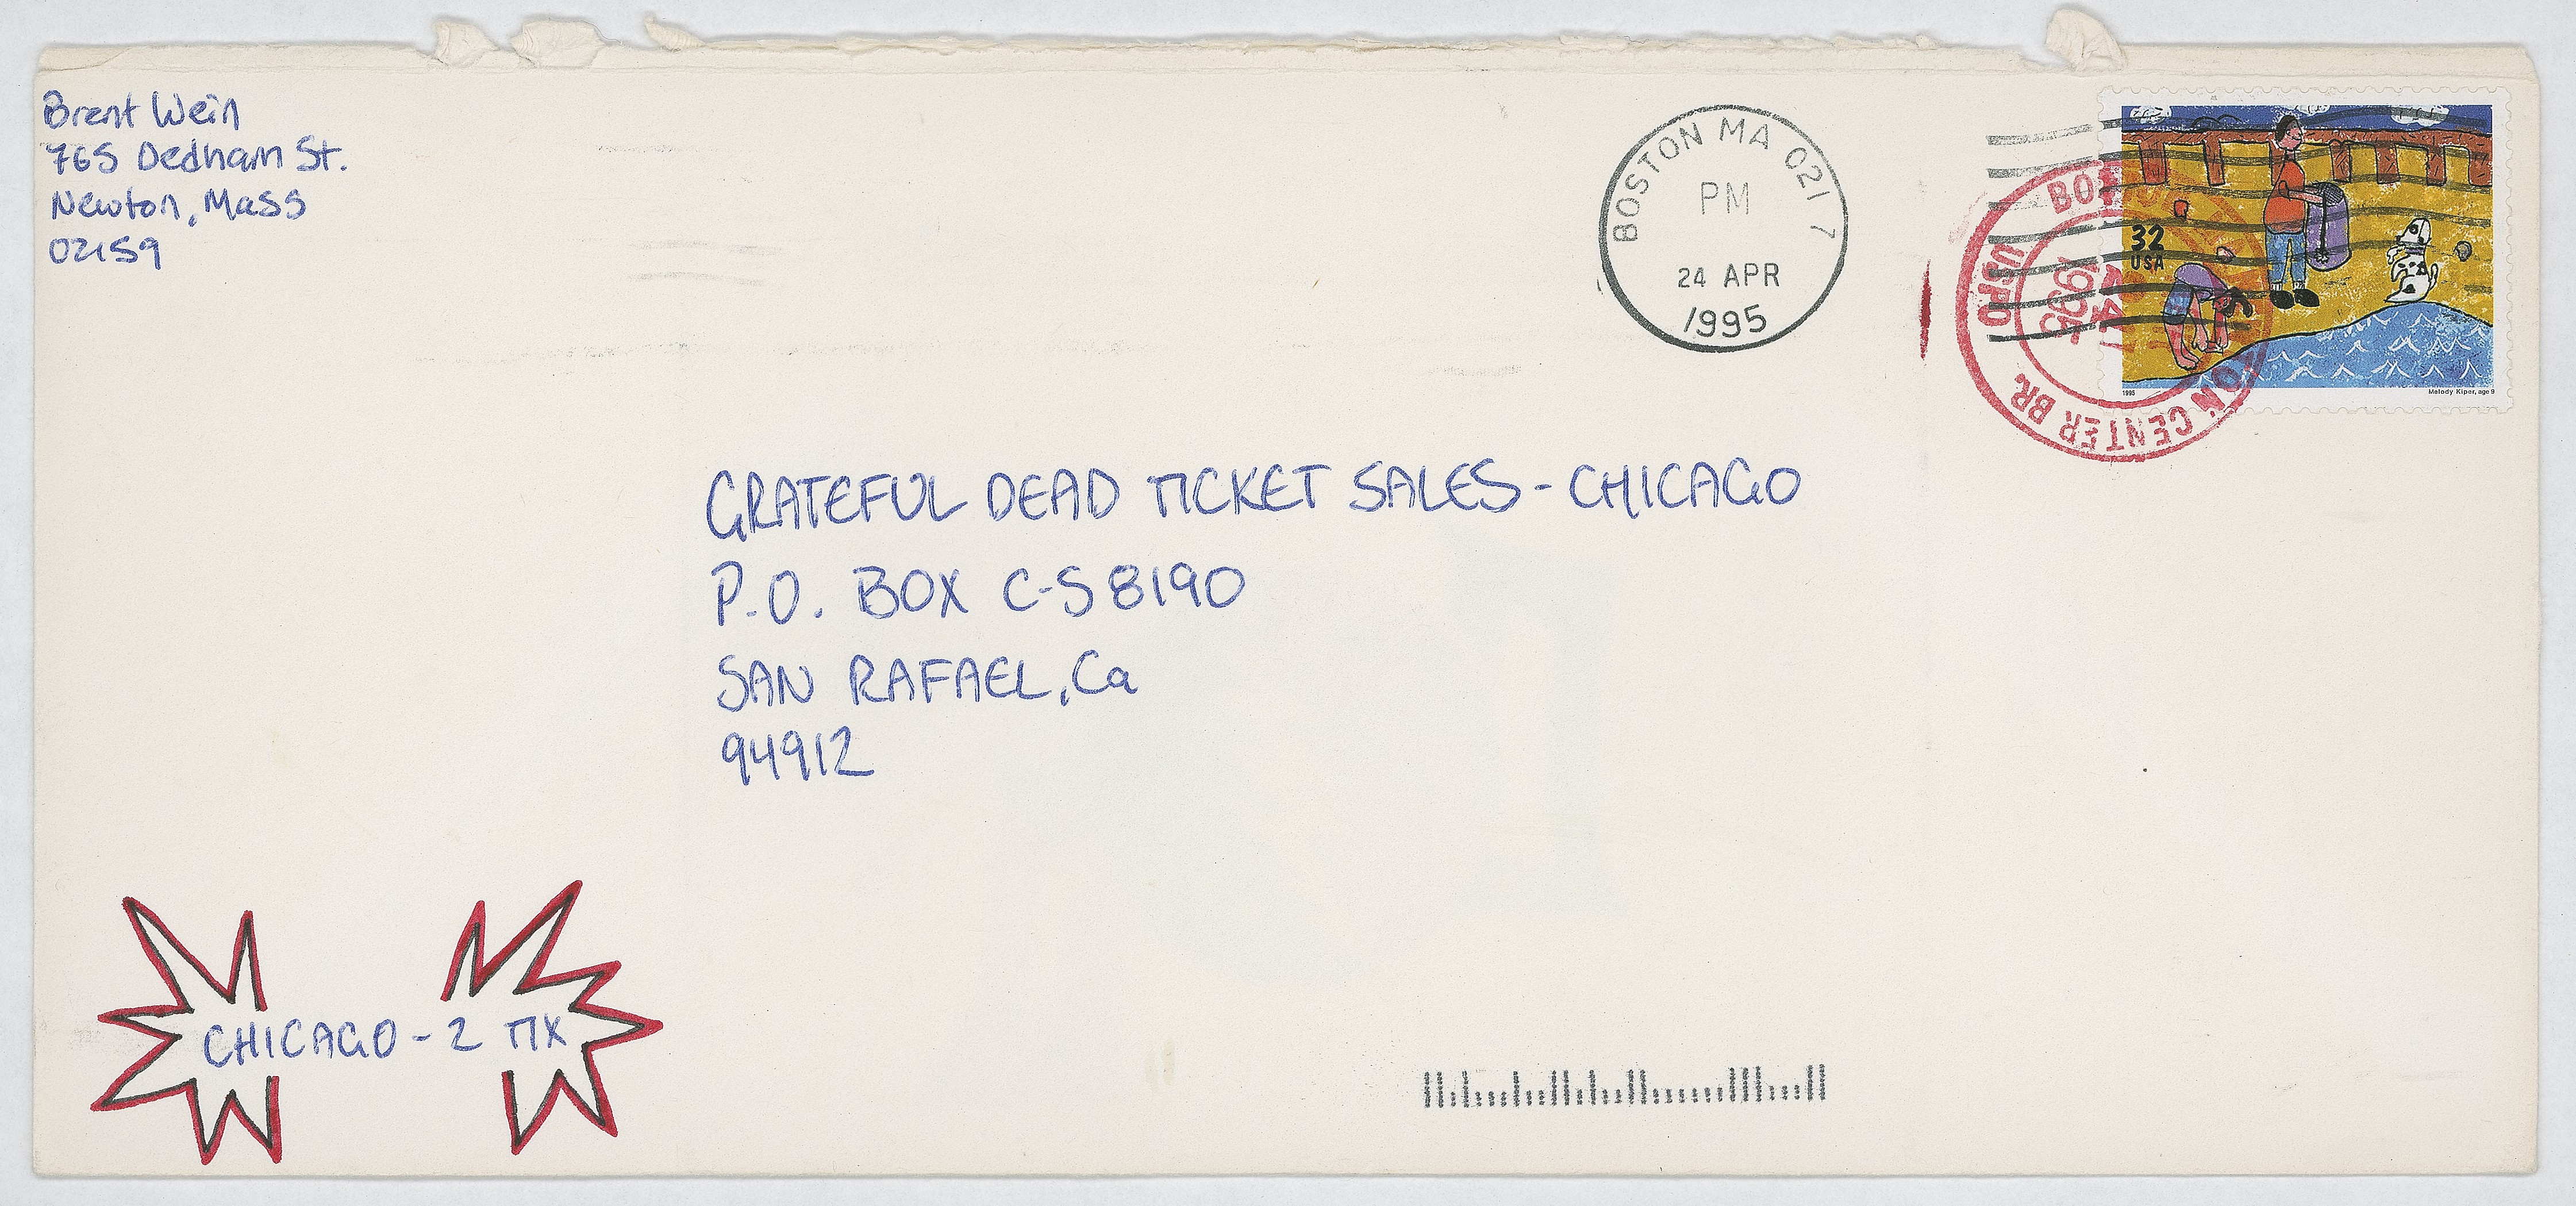 Brent Wein
765 Dedham St.
Newton, Mass
02159
BOSTON MA 021 7
PM
24 APR
1995
USPO
CENTER BR.
1995
32
USA
1995
Melody Kiper, age 9
GRATEFUL DEAD TICKET SALES - CHICAGO
P.O. BOX C-S8190
SAN RAFAEL, Ca
94912
CHICAGO - 2 TIX